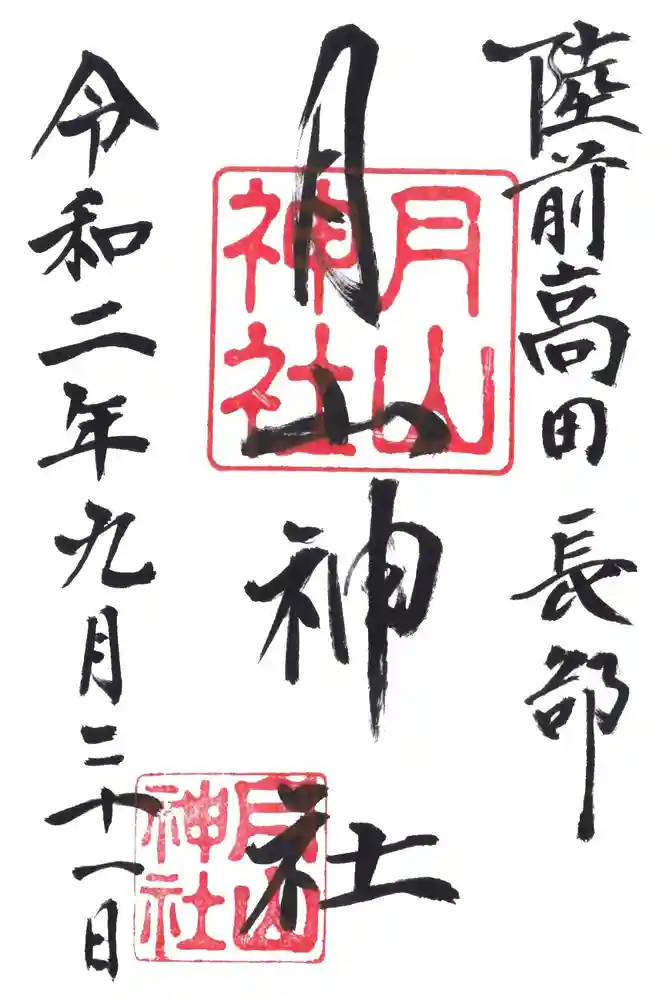 陸前高田 長部
月山神社
令和二年九月二十一日
月山
神社
月山
神社